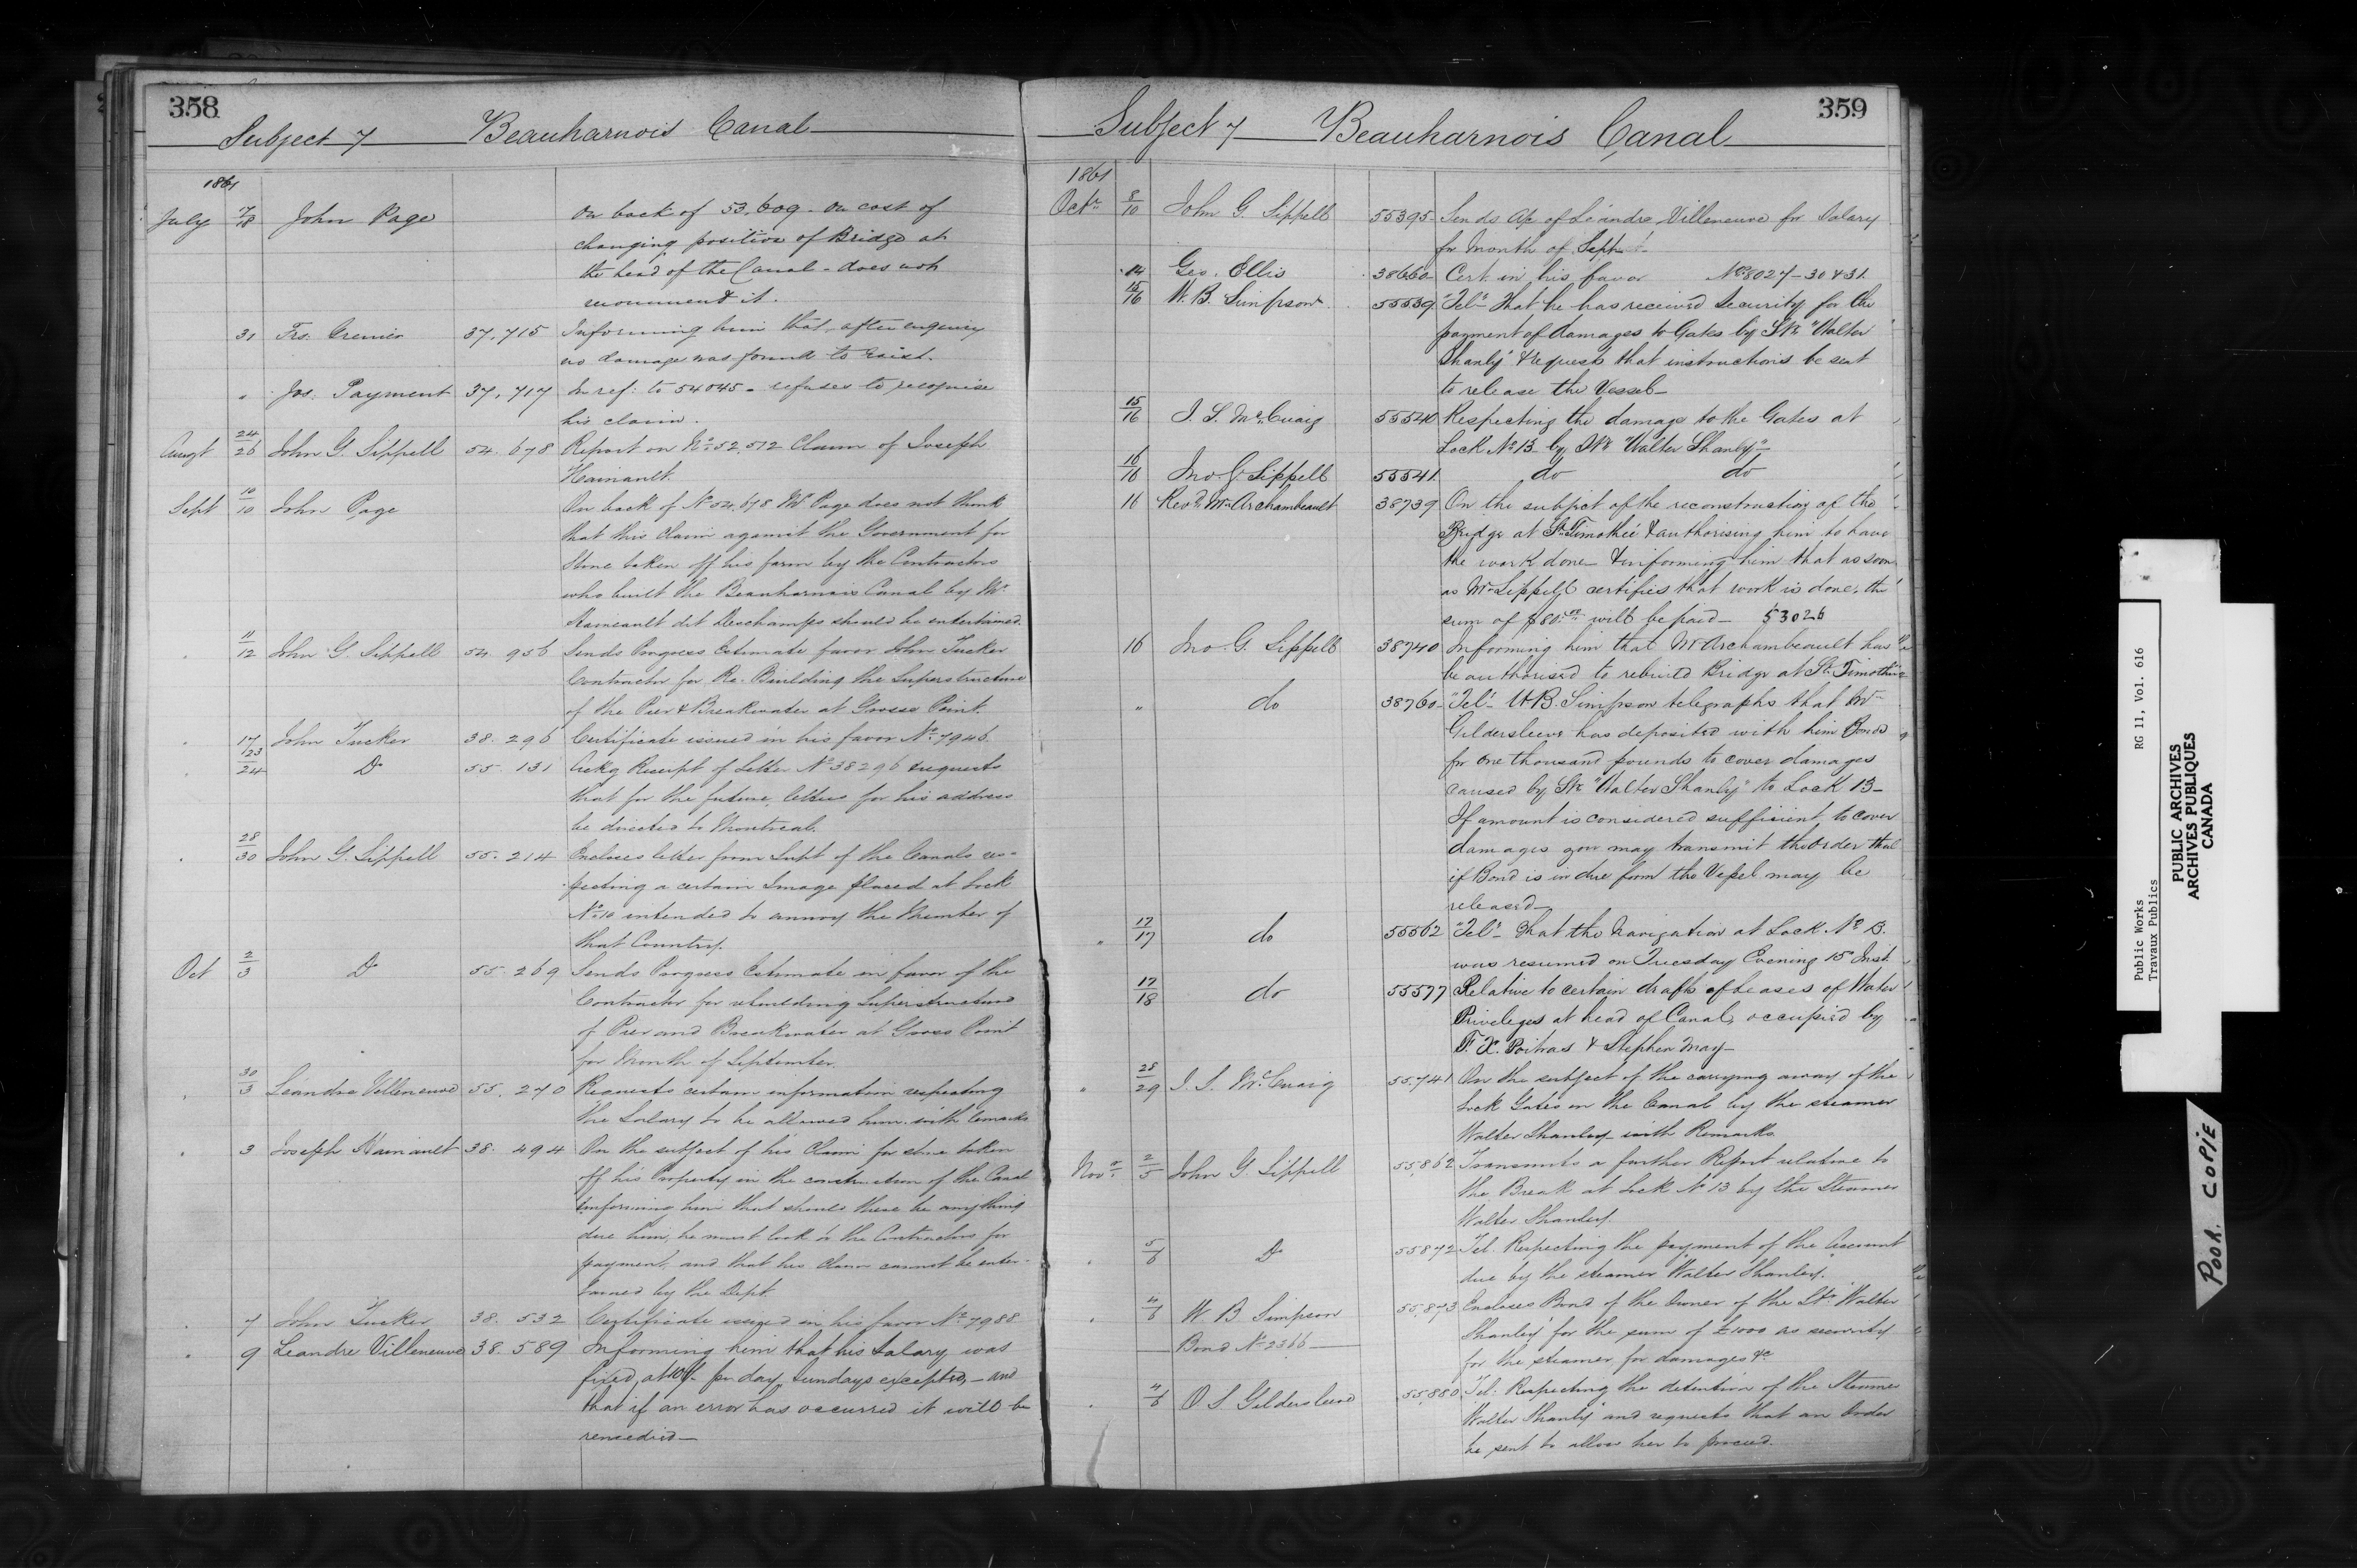 358
Subject 7 Beauharnois Canal
1861
July 17/18 John Page On back of 53,609 - On cost of
changing position of Bridge at
the head of the Canal - does not
recommend it.
31 Frs. Crenier 37,715 Informing him that after enquiry
no damage was found to exist.
" Jos. Payment 37,717 In ref: to 54045 - refuses to recognise
his claim.
Augt 24/26 John G. Sippell 54.678 Report on No. 52,512 Claim of Joseph
Hainault.
Sept 10/10 John Page On back of No 54,678 Mr Page does not think
that this claim against the Government for
Stone taken off his farm by the Contractors
who built the Beauharnois Canal by Mr
Hainault dit Deschamps should be entertained.
" 11/12 John G. Sippell 54.956 Sends Progress Estimate favor John Tucker
Contractor for Re-Building the Superstructure
of the Pier & Breakwater at Grosse Point.
" 17 John Tucker 38.296 Certificate issued in his favor No. 7946.
" 23/24 Do 55.131 Ackg Receipt of Letter No 38296 & requests
that for the future, letters for his address
be directed to Montreal.
" 28/30 John G. Sippell 55.214 Encloses letter from Supt of the Canals res-
pecting a certain Image placed at Lock
No. 10 intended to annoy the Member of
that Country.
Oct 2/3 Do 55.269 Sends Progress Estimate in favor of the
Contractor for rebuilding Superstructure
of Pier and Breakwater at Gross Point
for Month of September
" 30/3 Leandre Villeneuve 55.270 Requests certain information respecting
the Salary to be allowed him with remarks
" 3 Joseph Hainault 38.494 On the subject of his Claim for stone taken
off his Property in the construction of the Canal
& informing him that should there be anything
due him, he must look to the Contractors for
payment, and that his claim cannot be enter-
tained by the Dept.
" 7 John Tucker 38.532 Certificate issued in his favor No. 7988.
" 9 Leandre Villeneuve 38.589 Informing him that his Salary was
fixed, at 10/- per day, Sundays excepted, - and
that if an error has occurred it will be
remedied -
359
Subject 7 Beauharnois Canal
1861
Octr 8/10 John G. Sippell 55395 Sends A/c of Léandre Villeneuve for Salary
for Month of Sept.
14 Geo. Ellis 38660 Cert. in his favor Nos 8027-30 & 31.
15/16 W. B. Simpson 55539 "Tel" That he has received Security for the
payment of damages to Gates by Str "Walter
Shanly" & requests that instructions be sent
to release the Vessel -
15/16 J. S. McCuaig 55540 Respecting the damage to the Gates at
Lock No 13 by Str "Walter Shanly" -
16/16 Jno. G Sippell 55541 do do
16 Revd. Mr Archambeault 38739 On the subject of the reconstruction of the
Bridge at St. Timothée & authorising him to have
the work done - & informing him that as soon
as Mr Sippell certifies that work is done, the
sum of $80.00 will be paid - 53026
16 Jno G. Sippell 38740 Informing him that Mr Archambeault has
be authorised to rebuild Bridge at St. Timothée
" do 38760 "Tel" W.B. Simpson telegraphs that Mr
Gildersleeve has deposited with him Bonds
for one thousand pounds to cover damages
caused by Str "Walter Shanly" to Lock 13 -
If amount is considered sufficient, to cover
damages you may transmit the order that
if Bond is in due form the Vessel may be
released -
" 17/17 do 55562 "Tel" - That the Navigation at Lock No 13.
was resumed on Tuesday Evening 15 Inst
17/18 do 55577 Relative to certain drafts of Leases of Water
Priveleges at head of Canal, occupied by
F. X. Poitras & Stephen May -
" 28/29 J. S. McCuaig 55,741 On the subject of the carrying away of the
Lock Gates on the Canal by the steamer
Walter Shanley with Remarks.
Novr 2/5 John G. Sippell 55,862 Transmits a further Report relative to
the Break at Lock No 13 by the Steamer
Walter Shanley.
" 5/6 Do 55872 Tel. Respecting the payment of the Account
due by the steamer "Walter Shanley."
" 4/6 W. B Simpson 55,873 Encloses Bond of the Owner of the Str "Walter
Bond No 2366 Shanley" for the sum of £1000 as security
for the steamer, for damages &c
" 4/6 O S Gildersleeve 55,880 Tel. Respecting the detention of the Steamer
"Walter Shanly" and requests that an Order
be sent to allow her to proceed.
Public Works RG 11, Vol. 616
Travaux Publics
PUBLIC ARCHIVES
ARCHIVES PUBLIQUES
CANADA
POOR COPIE